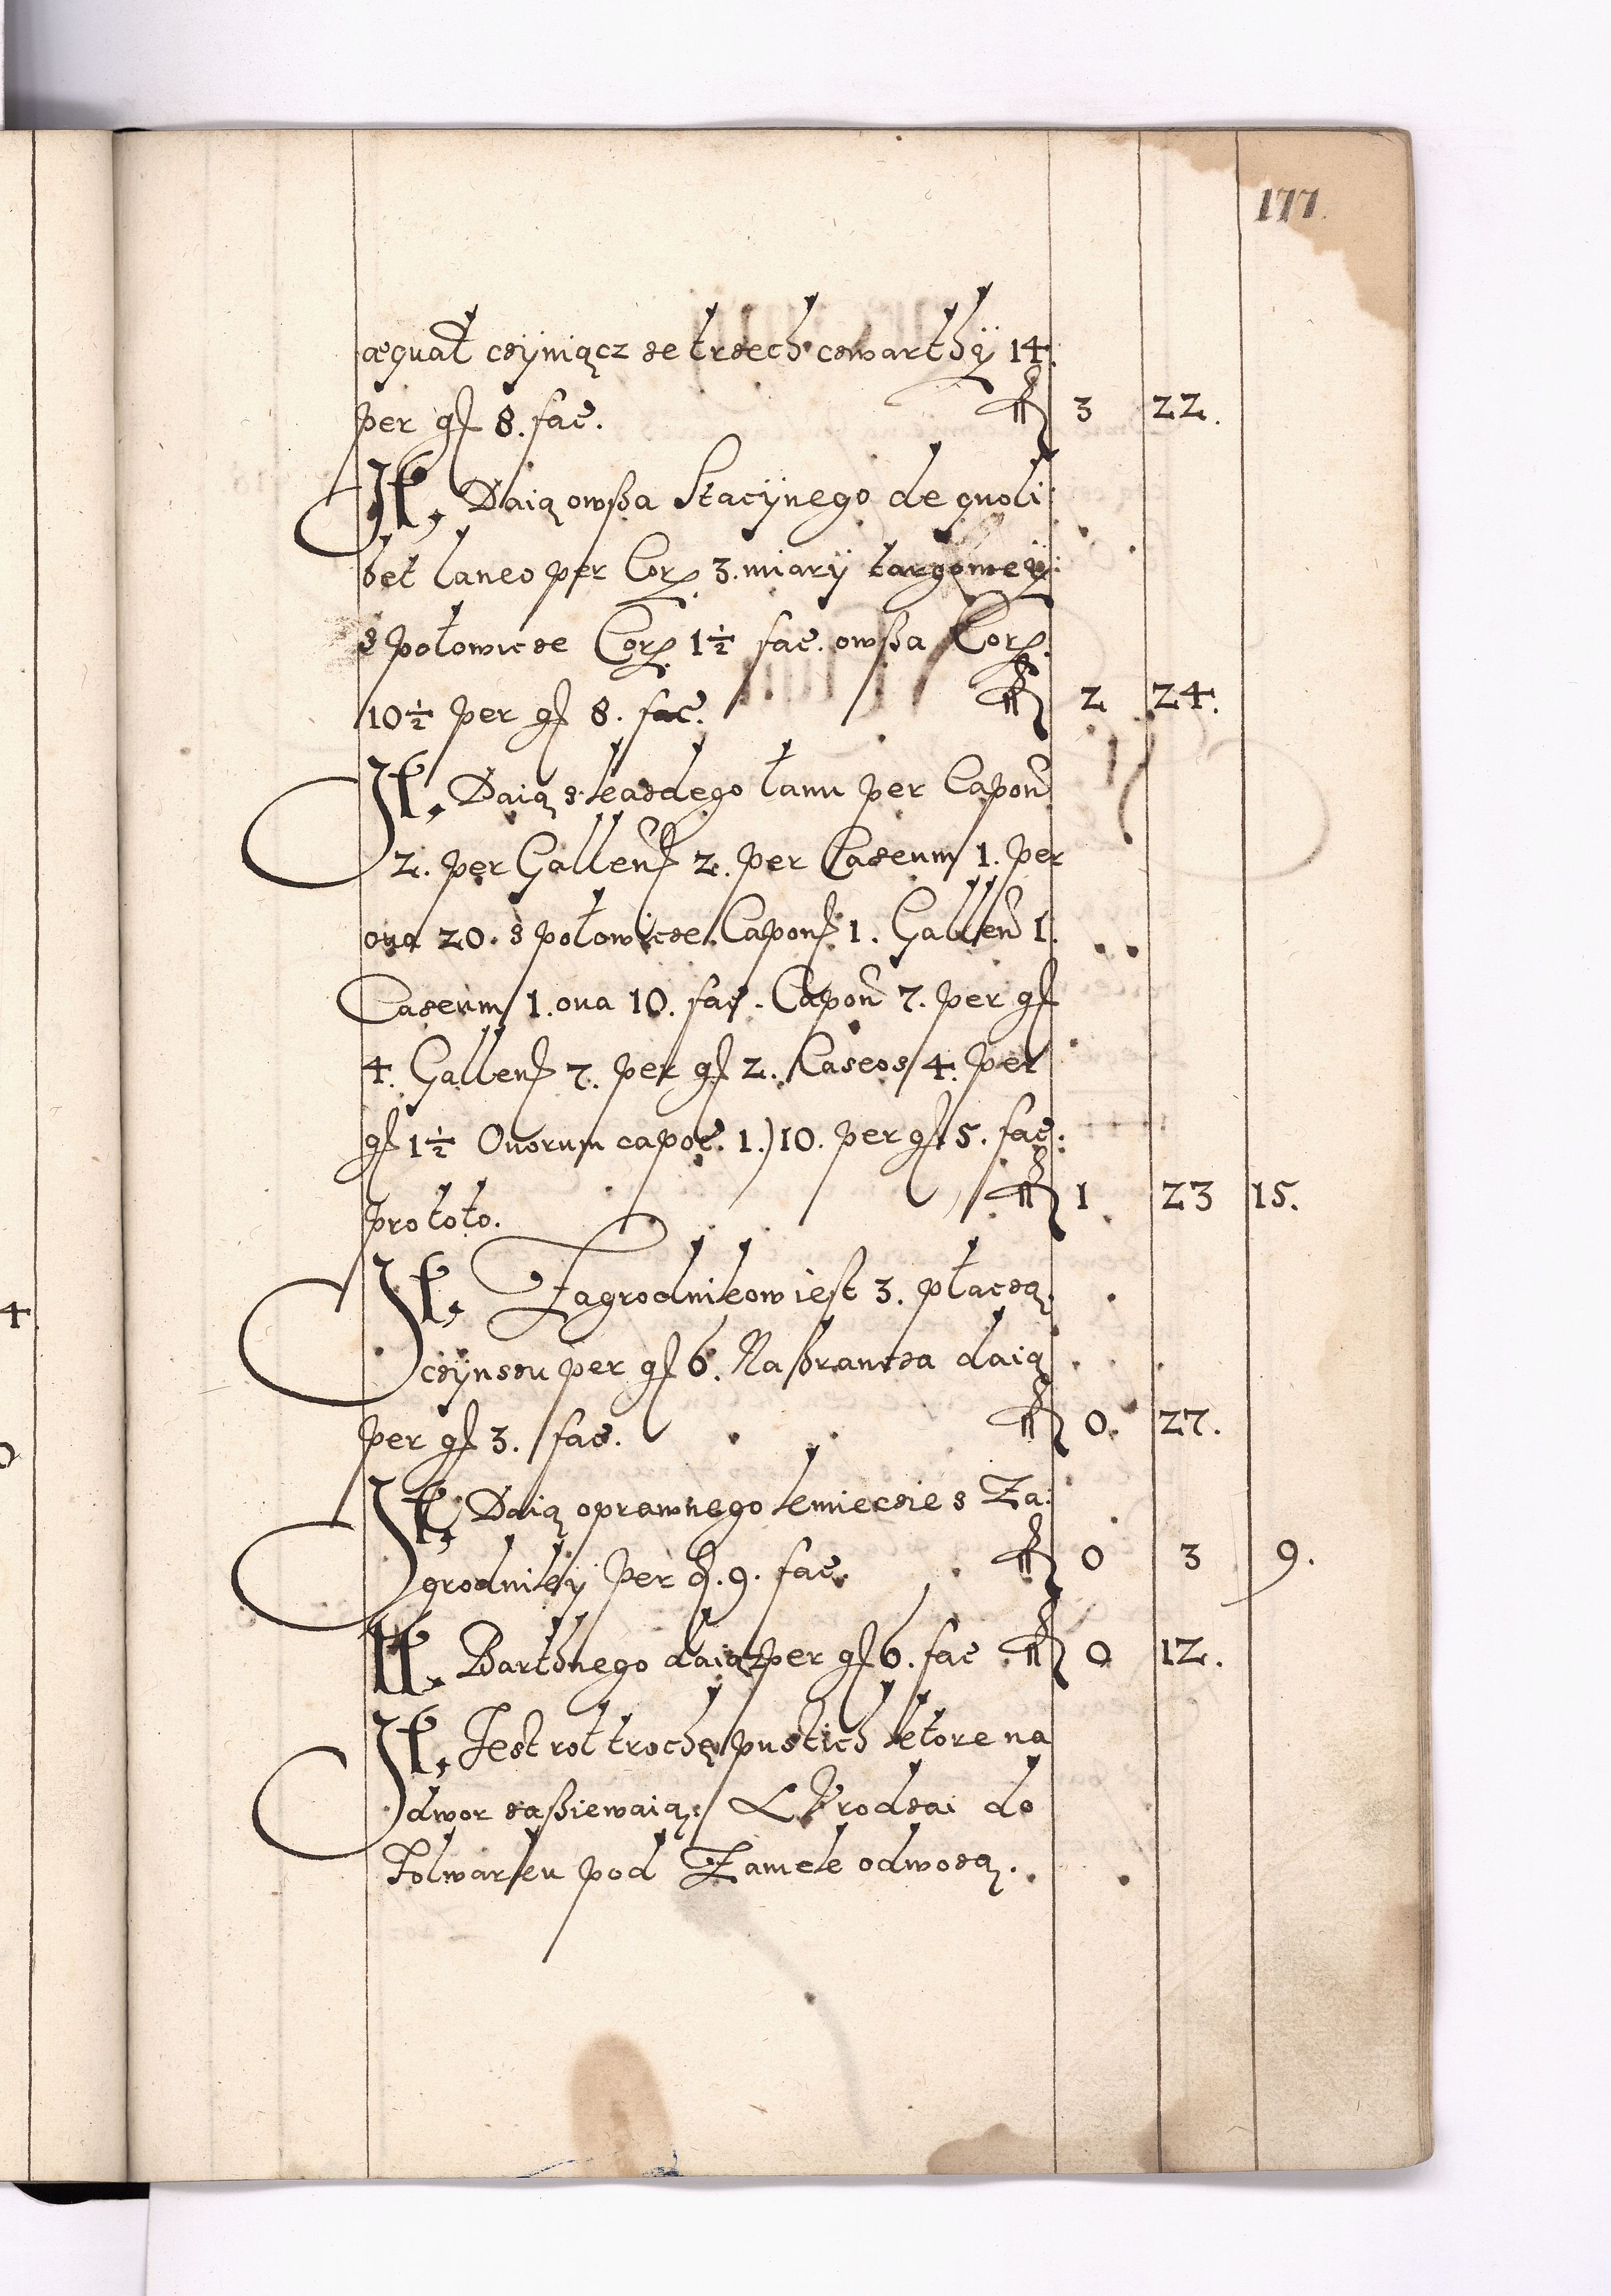 177.
æquał czÿniącz ze trzech czwarthÿ 14.
per gſ 8. fac. fl 3 22.
It. Daią owßa Stacÿnego de quoli
bet laneo per Corz. 3. miarÿ targoweÿ:
z połowicze Corz. 1½ fac. owßa Corz.
10½ per gſ 8. fac. fl 2 24.
It. Daią z kazdego łanu per Capoñ
2. per Gallenſ 2. per Caseum 1. per
oua 20. z połowicze. Caponſ 1. Galleñ 1.
Caseum 1. oua 10. fac. Capoñ 7. per gſ
4. Gallenſ 7. per gſ 2. Caseos 4. per
gſ 1½ Ouorum capoc. 1.) 10. per gſ 5. fac:
pro toto. fl 1 23 15.
It. Zagrodnikow iest 3. płaczą
czÿnszu per gſ 6. Na daią
per gſ 3. fac. fl 0. 27.
It. Daią oprawnego kmieczie z Za:
grodnikÿ per đ. 9. fac. fl 0 3 9.
It. Barthnego daią per gſ 6. fac. fl 0 12.
It. Jest rol trochę pustich ktore na
dwor zaßiewaią: Vrodzai do
Folwarku pod Zamek odwozą.
4
0